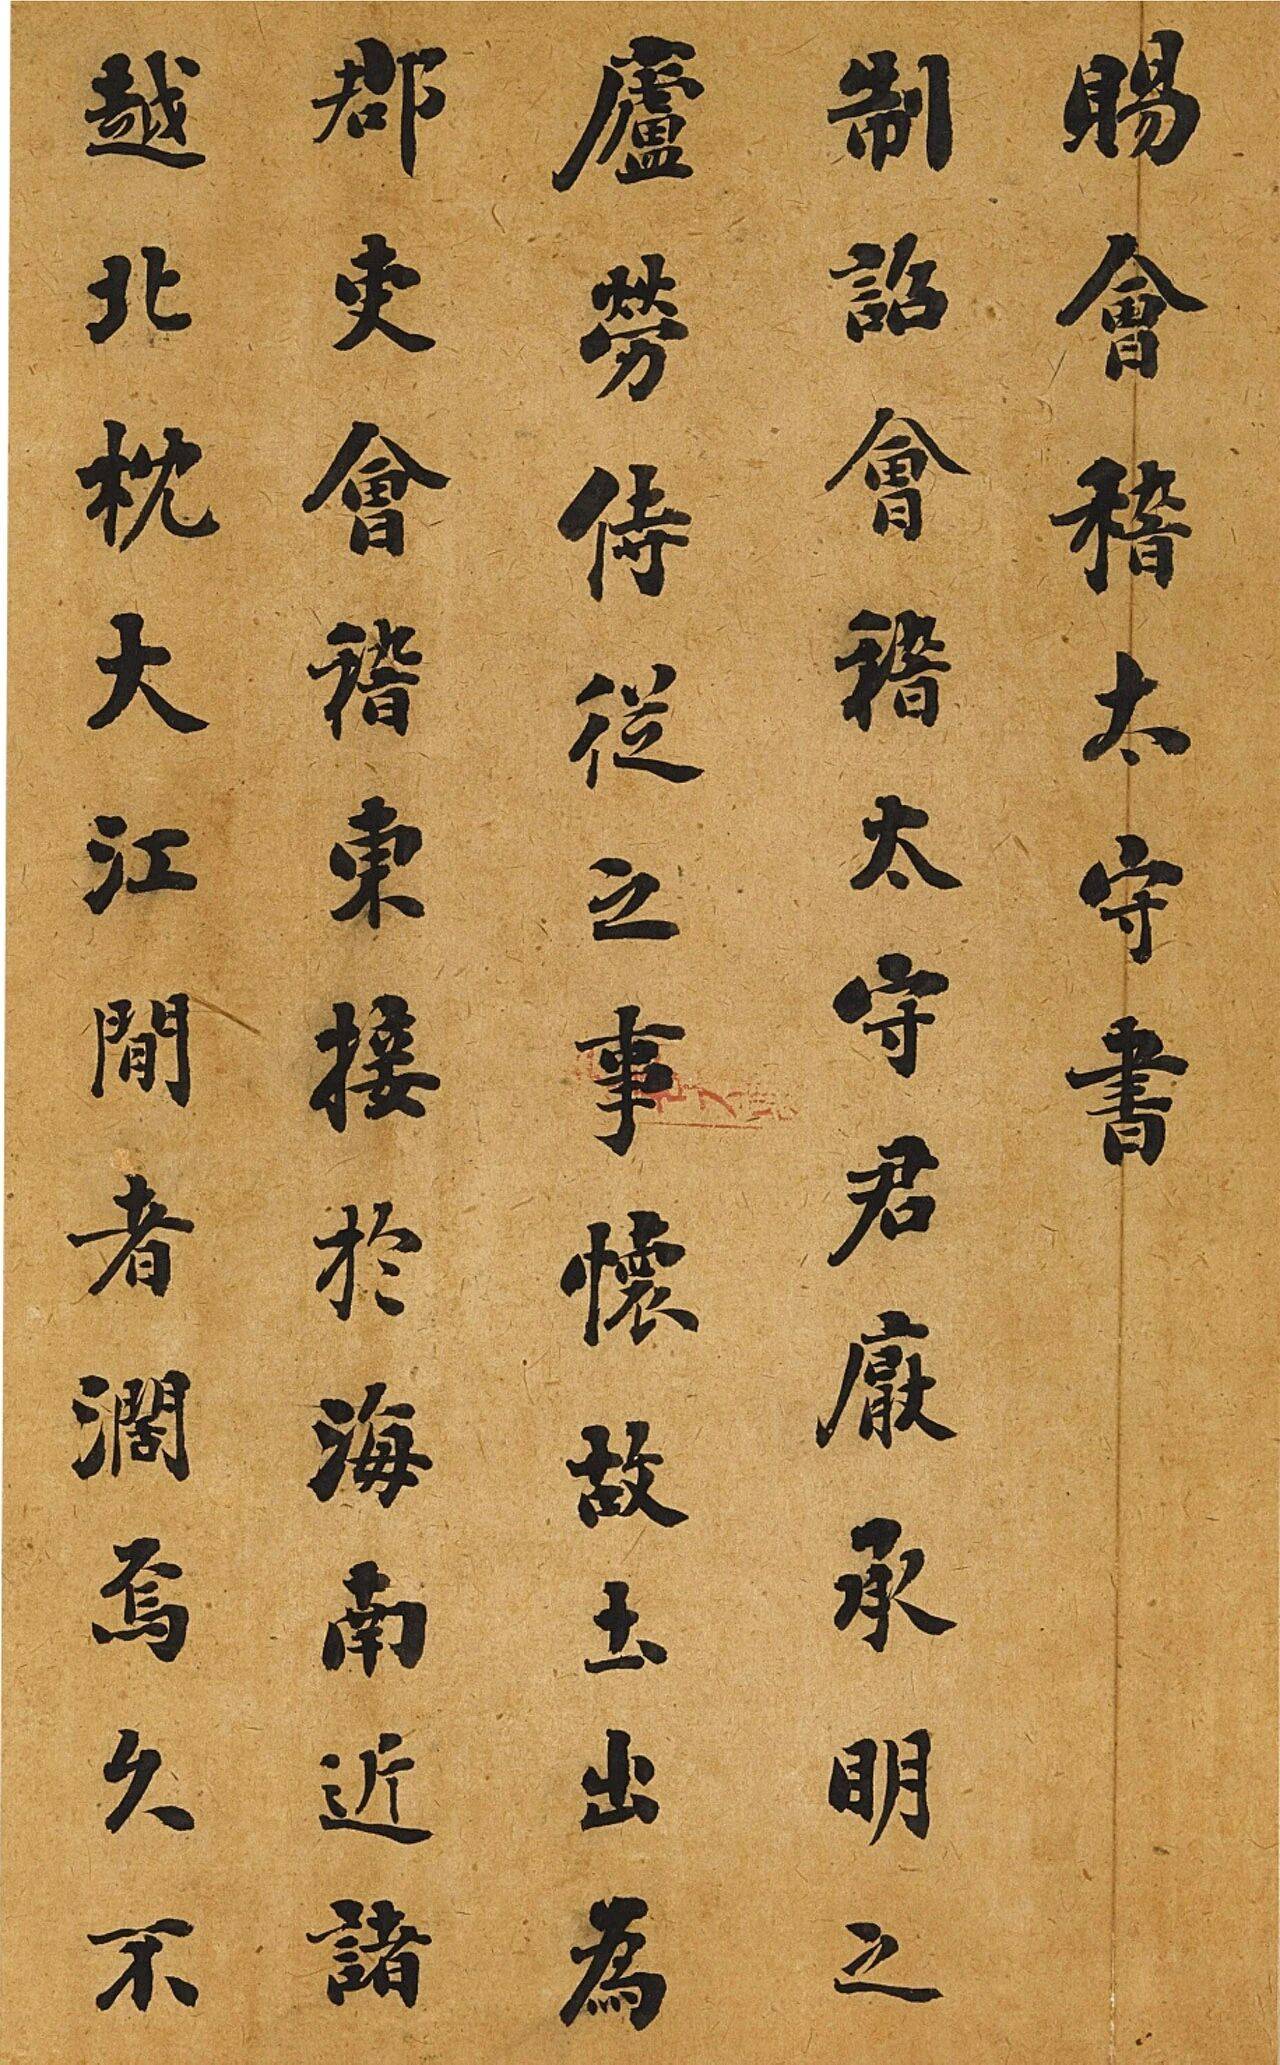 賜會稽太守書
制詔會稽太守君厭承明之
廬勞侍從之事懷故土出為
郡吏會稽東接於海南近諸
越北枕大江間者濶焉久不